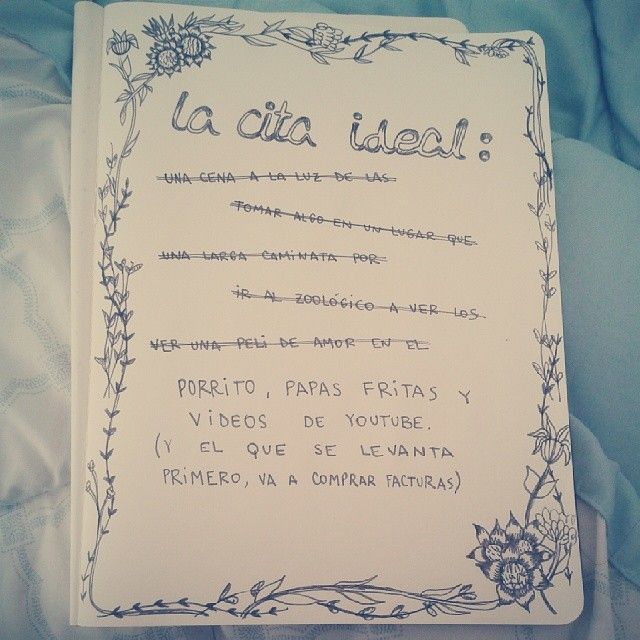 la cita ideal:
UNA CENA A LA LUZ DE LAS
TOMAR ALGO EN UN LUGAR QUE
UNA LARGA CAMINATA POR
IR AL ZOOLÓGICO A VER LOS
VER UNA PELI DE AMOR EN EL
PORRITO, PAPAS FRITAS Y
VIDEOS DE YOUTUBE.
(Y EL QUE SE LEVANTA
PRIMERO, VA A COMPRAR FACTURAS)